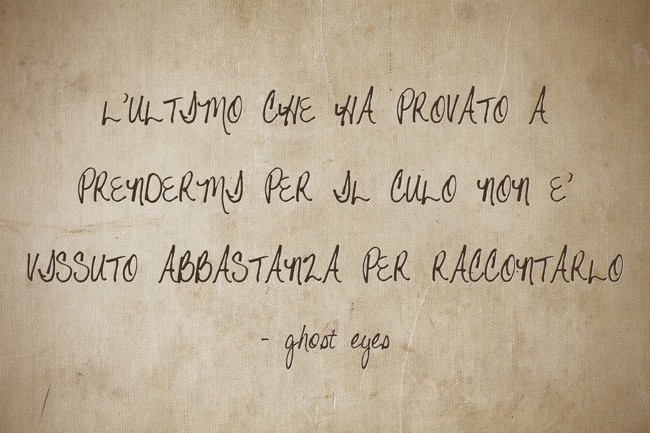 L'ULTIMO CHE HA PROVATO A
PRENDERMI PER IL CULO NON E'
VISSUTO ABBASTANZA PER RACCONTARLO
- ghost eyes